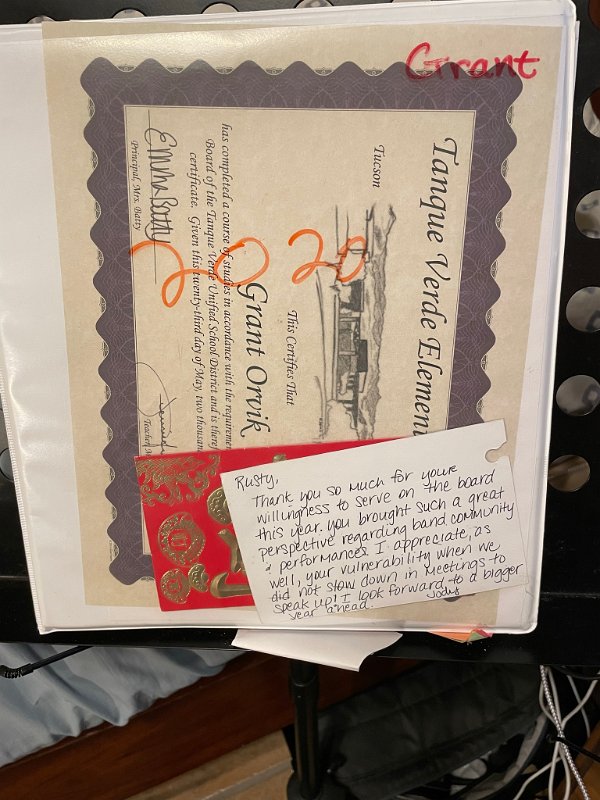 Grant
Tanque Verde Element
Tucson
2020
This Certifies That
Grant Orvik
has completed a course of studies in accordance with the requiremen
Board of the Tanque Verde Unified School District and is there
certificate. Given this twenty-third day of May, two thousan
Emma Batty
Principal, Mrs. Batty
Teacher, M
Rusty,
Thank you so much for your
willingness to serve on the board
this year. You brought such a great
perspective regarding band, community
& performances. I appreciate, as
well, your vulnerability when we
did not slow down in meetings to
speak up! I look forward to a bigger
year ahead.
Jody